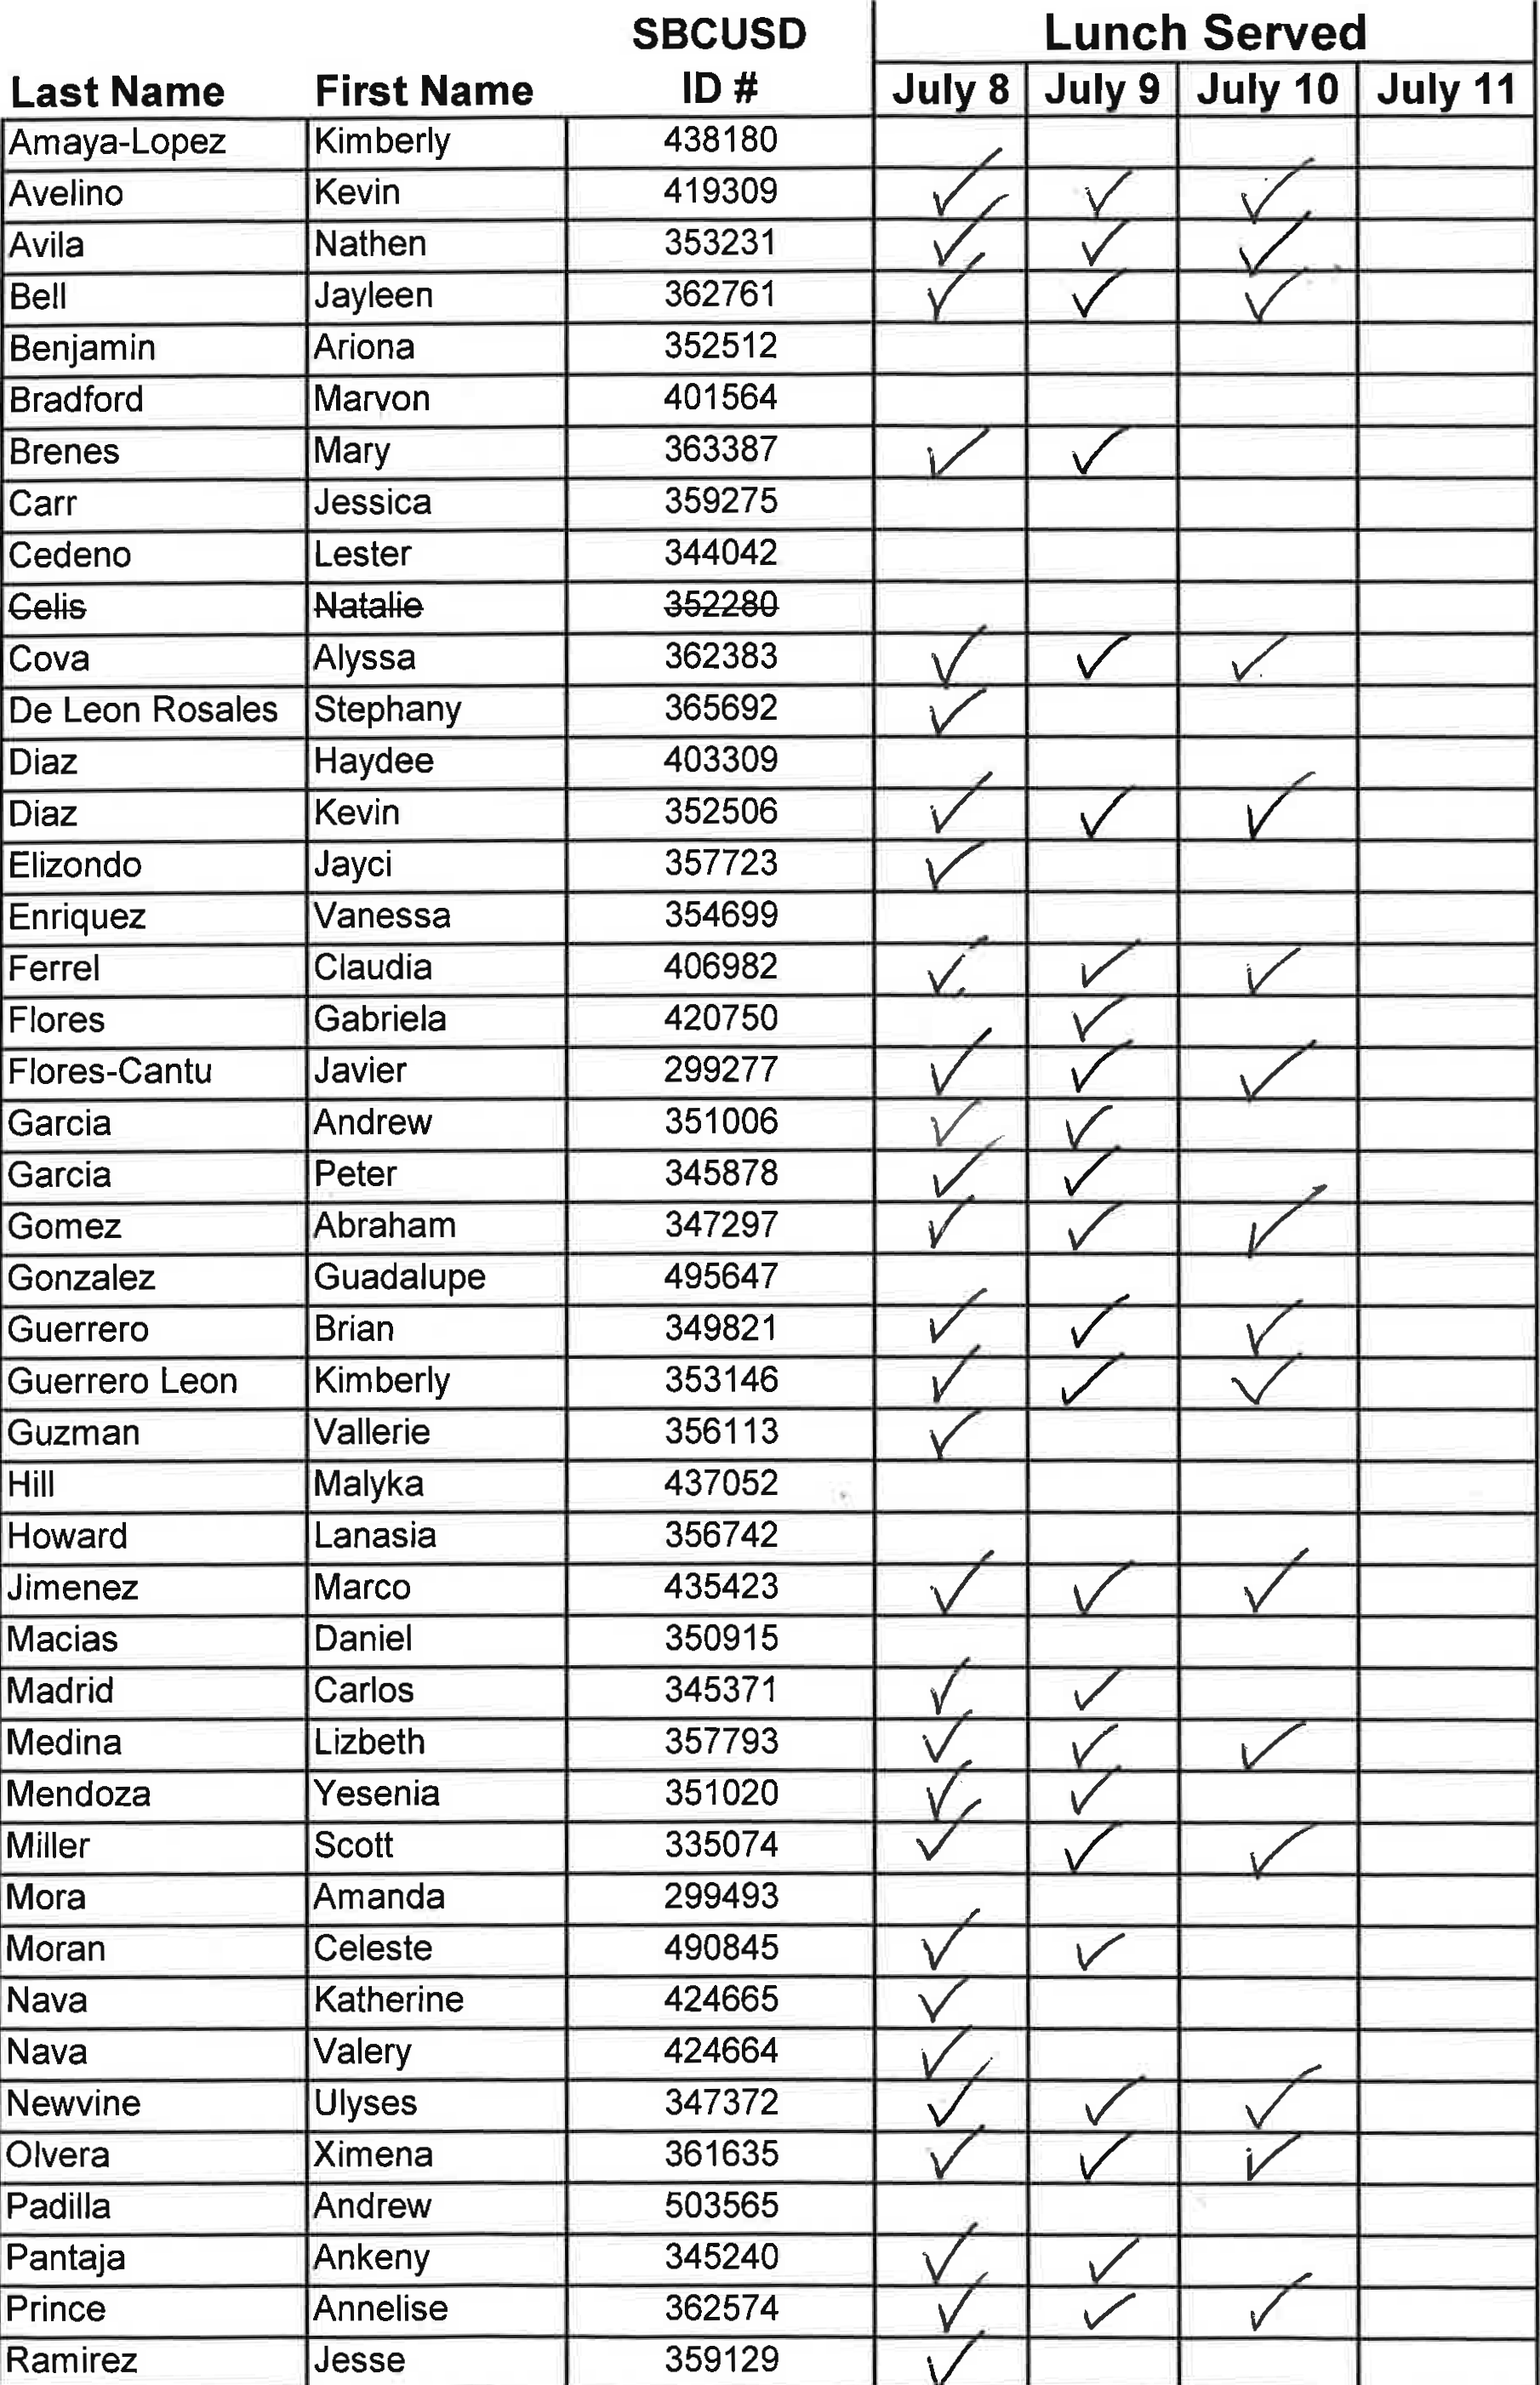 SBCUSD Lunch Served
Last Name First Name ID # July 8 July 9 July 10 July 11
Amaya-Lopez Kimberly 438180
Avelino Kevin 419309 ✓ ✓ ✓
Avila Nathen 353231 ✓ ✓ ✓
Bell Jayleen 362761 ✓ ✓ ✓
Benjamin Ariona 352512
Bradford Marvon 401564
Brenes Mary 363387 ✓ ✓
Carr Jessica 359275
Cedeno Lester 344042
Celis Natalie 352280
Cova Alyssa 362383 ✓ ✓ ✓
De Leon Rosales Stephany 365692 ✓
Diaz Haydee 403309
Diaz Kevin 352506 ✓ ✓ ✓
Elizondo Jayci 357723 ✓
Enriquez Vanessa 354699
Ferrel Claudia 406982 ✓ ✓ ✓
Flores Gabriela 420750 ✓
Flores-Cantu Javier 299277 ✓ ✓ ✓
Garcia Andrew 351006 ✓ ✓
Garcia Peter 345878 ✓ ✓
Gomez Abraham 347297 ✓ ✓ ✓
Gonzalez Guadalupe 495647
Guerrero Brian 349821 ✓ ✓ ✓
Guerrero Leon Kimberly 353146 ✓ ✓ ✓
Guzman Vallerie 356113 ✓
Hill Malyka 437052
Howard Lanasia 356742
Jimenez Marco 435423 ✓ ✓ ✓
Macias Daniel 350915
Madrid Carlos 345371 ✓ ✓
Medina Lizbeth 357793 ✓ ✓ ✓
Mendoza Yesenia 351020 ✓ ✓
Miller Scott 335074 ✓ ✓ ✓
Mora Amanda 299493
Moran Celeste 490845 ✓ ✓
Nava Katherine 424665 ✓
Nava Valery 424664 ✓
Newvine Ulyses 347372 ✓ ✓ ✓
Olvera Ximena 361635 ✓ ✓ ✓
Padilla Andrew 503565
Pantaja Ankeny 345240 ✓ ✓
Prince Annelise 362574 ✓ ✓ ✓
Ramirez Jesse 359129 ✓